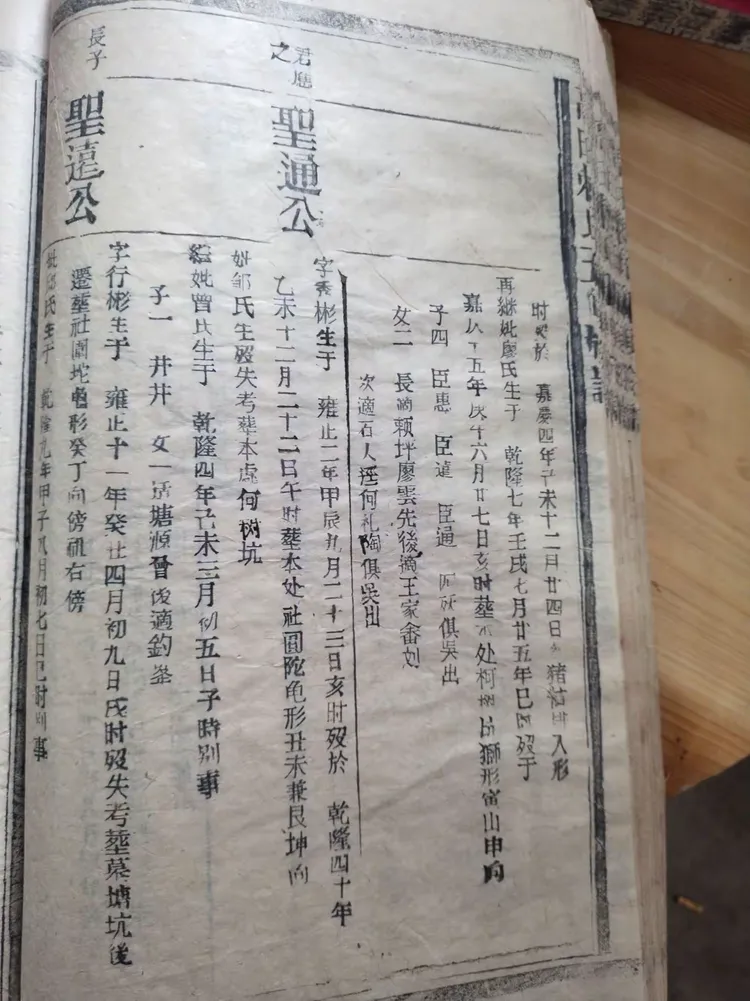 时殁於 嘉慶四年己未十二月廿四日 猪 人形
再継妣廖氏生于 乾隆七年壬戌七月廿五年巳 殁于
嘉 十五年庚 六月廿七日亥时塟 处柯 獅形寅山申向
子四 臣惠 臣達 臣通 俱吳出
女二 長適頼坪廖雲先後適王家畬刘
次適石人 何礼陶俱吳出
君應
之
聖通公
字秀彬生于 雍正二年甲辰九月二十三日亥时殁於 乾隆四十年
乙未十二月二十二日午时塟本处社圓陀龟形丑未兼艮坤向
妣邹氏生殁失考塟本處何树坑
継妣曾氏生于 乾隆四年己未三月初五日子時别事
子一 井井 女一适塘源晉後適釣峯
長子
聖遠公
字行彬生于 雍正十一年癸丑四月初九日戌时殁失考塟墓塘坑後
遷塟社圓坨龟形癸丁向傍祖右傍
妣邹氏生于 乾隆九年甲子八月初七日巳时别事